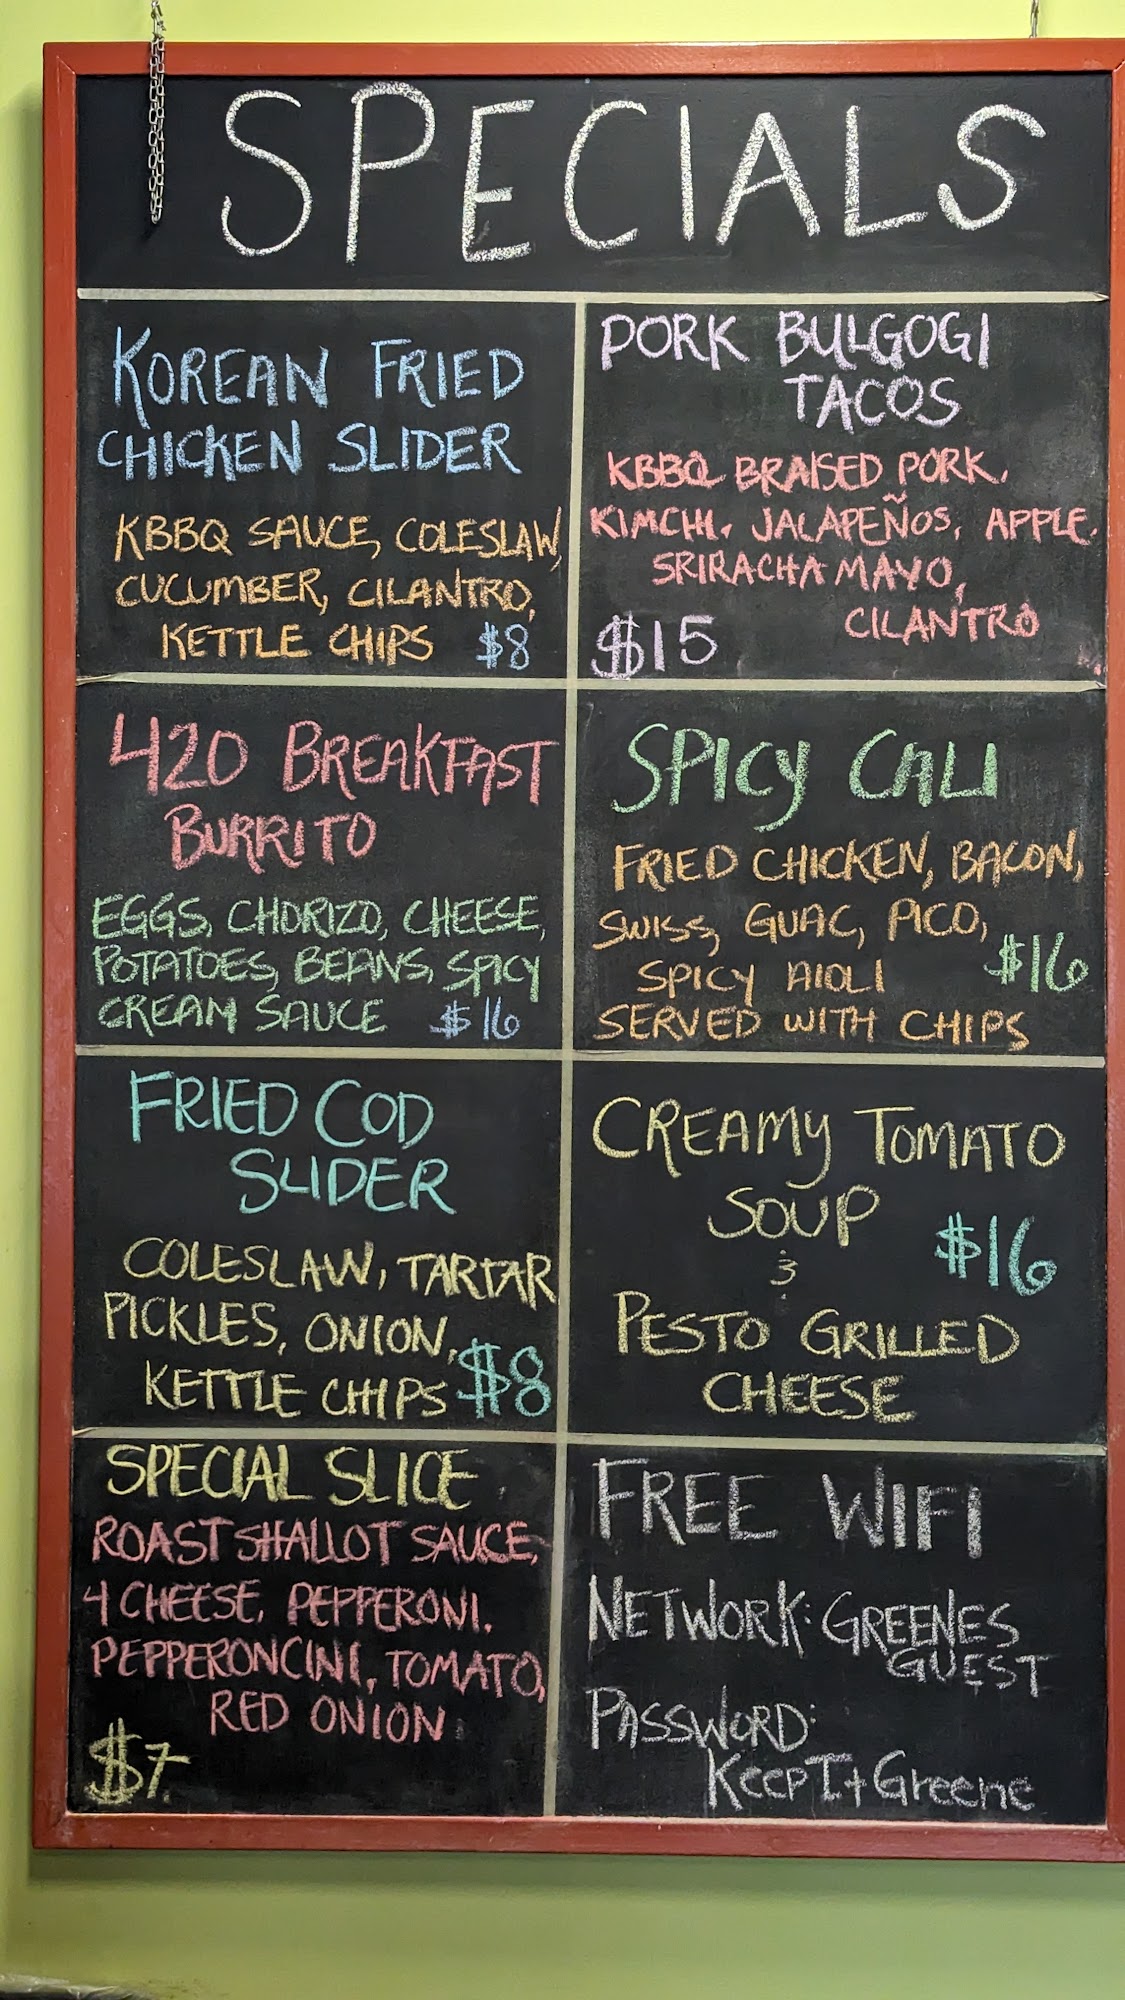 SPECIALS
KOREAN FRIED
CHICKEN SLIDER
KBBQ SAUCE, COLESLAW,
CUCUMBER, CILANTRO,
KETTLE CHIPS $8
PORK BULGOGI
TACOS
KBBQ BRAISED PORK,
KIMCHI, JALAPEÑOS, APPLE,
SRIRACHA MAYO,
CILANTRO
$15
420 BREAKFAST
BURRITO
EGGS, CHORIZO, CHEESE,
POTATOES, BEANS, SPICY
CREAM SAUCE $16
SPICY CALI
FRIED CHICKEN, BACON,
SWISS, GUAC, PICO,
SPICY AIOLI $16
SERVED WITH CHIPS
FRIED COD
SLIDER
COLESLAW, TARTAR
PICKLES, ONION,
KETTLE CHIPS $8
CREAMY TOMATO
SOUP $16
&
PESTO GRILLED
CHEESE
SPECIAL SLICE
ROAST SHALLOT SAUCE,
4 CHEESE, PEPPERONI,
PEPPERONCINI, TOMATO,
RED ONION
$7
FREE WIFI
NETWORK: GREENES
GUEST
PASSWORD:
KeepItGreene